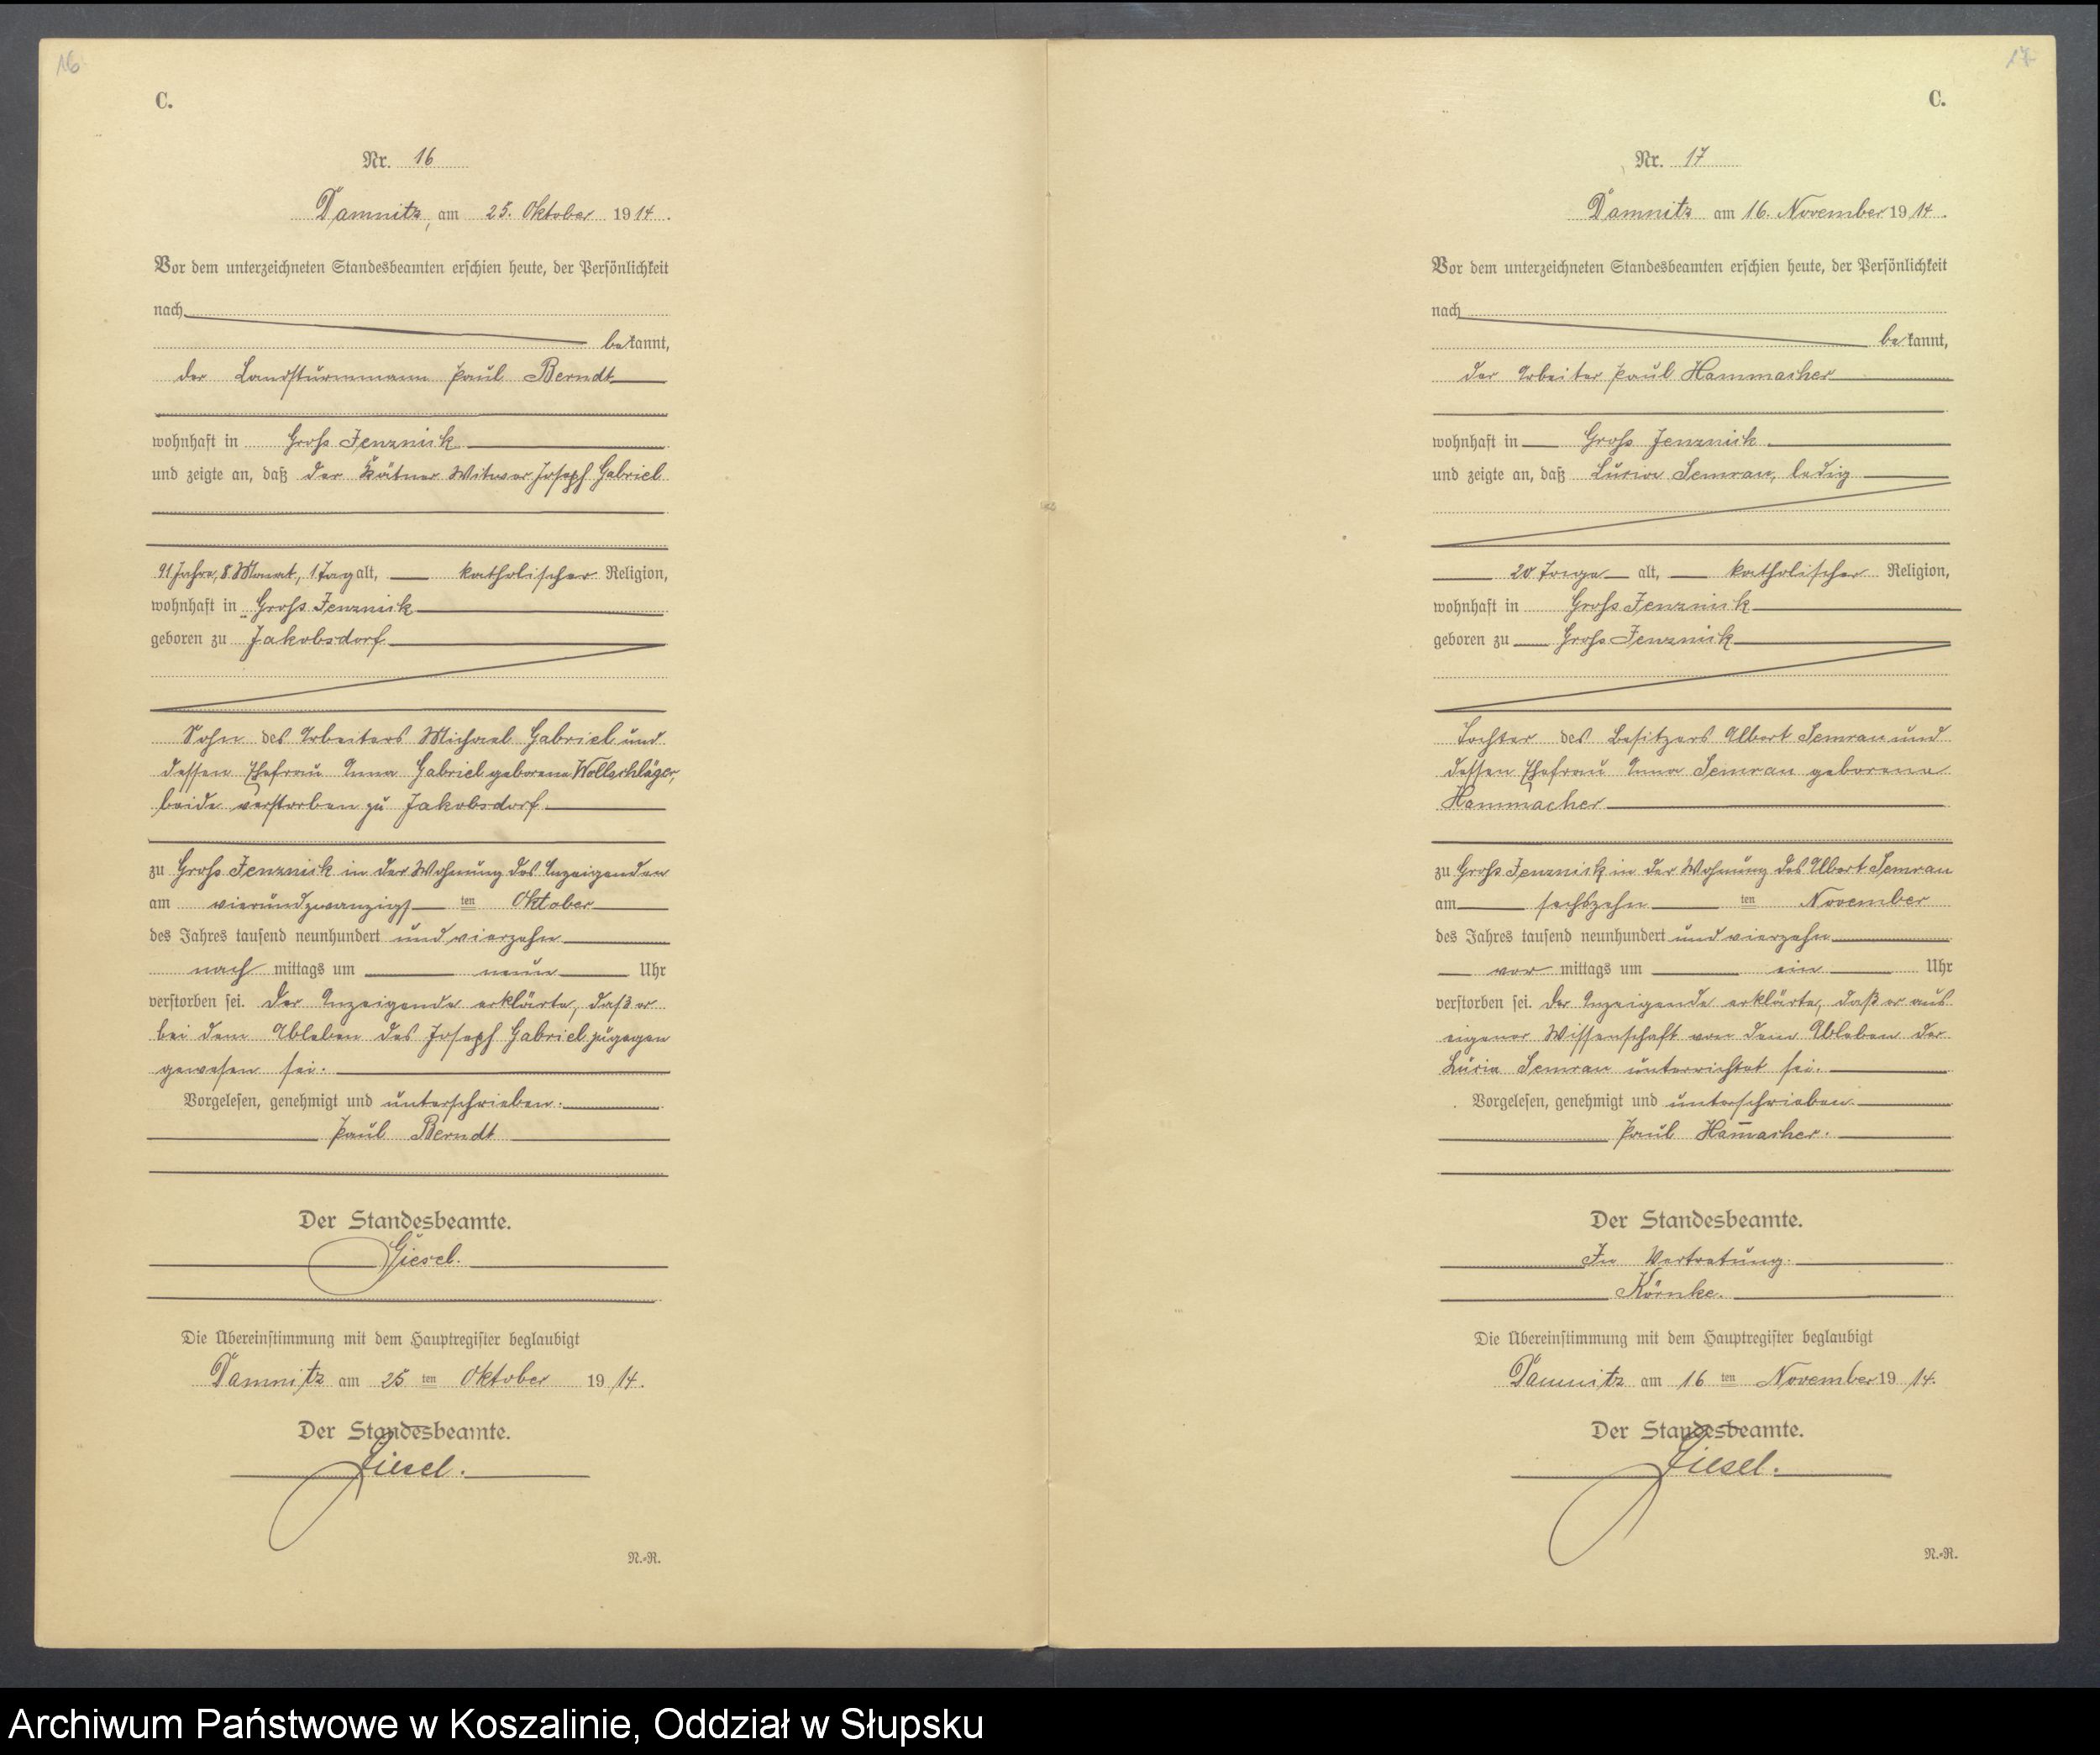 16
C.
Nr. 16
Damnitz, am 25. Oktober 1914.
Vor dem unterzeichneten Standesbeamten erschien heute, der Persönlichkeit
nach
bekannt,
der Landsturmmann Paul Berndt
wohnhaft in Groß Jenznick
und zeigte an, daß der Kätner Witwer Joseph Gabriel
91 Jahre, 8 Monat, 1 Tag alt, katholischer Religion,
wohnhaft in Groß Jenznick
geboren zu Jakobsdorf
Sohn des Arbeiters Michael Gabriel und
dessen Ehefrau Anna Gabriel geborene Wollschläger,
beide verstorben zu Jakobsdorf
zu Groß Jenznick in der Wohnung des Anzeigenden
am vierundzwanzigsten Oktober
des Jahres tausend neunhundert und vierzehn
nach mittags um neun Uhr
verstorben sei. Der Anzeigende erklärte, daß er
bei dem Ableben des Joseph Gabriel zugegen
gewesen sei.
Vorgelesen, genehmigt und unterschrieben.
Paul Berndt
Der Standesbeamte.
Giesel.
Die Übereinstimmung mit dem Hauptregister beglaubigt
Damnitz am 25 ten Oktober 1914.
Der Standesbeamte.
Giesel.
N.-R.
17
C.
Nr. 17
Damnitz am 16. November 1914.
Vor dem unterzeichneten Standesbeamten erschien heute, der Persönlichkeit
nach
bekannt,
der Arbeiter Paul Hammacher
wohnhaft in Groß Jenznick
und zeigte an, daß Luzia Semrau, ledig
20 Tage alt, katholischer Religion,
wohnhaft in Groß Jenznick
geboren zu Groß Jenznick
Tochter des Besitzers Albert Semrau und
dessen Ehefrau Anna Semrau geborene
Hammacher
zu Groß Jenznick in der Wohnung des Albert Semrau
am sechszehn ten November
des Jahres tausend neunhundert und vierzehn
vor mittags um ein Uhr
verstorben sei. Der Anzeigende erklärte, daß er aus
eigener Wissenschaft von dem Ableben der
Luzia Semrau unterrichtet sei.
Vorgelesen, genehmigt und unterschrieben
Paul Ham̄acher.
Der Standesbeamte.
In Vertretung.
Körnke.
Die Übereinstimmung mit dem Hauptregister beglaubigt
Damnitz am 16 ten November 1914.
Der Standesbeamte.
Giesel.
N.-R.
Archiwum Państwowe w Koszalinie, Oddział w Słupsku